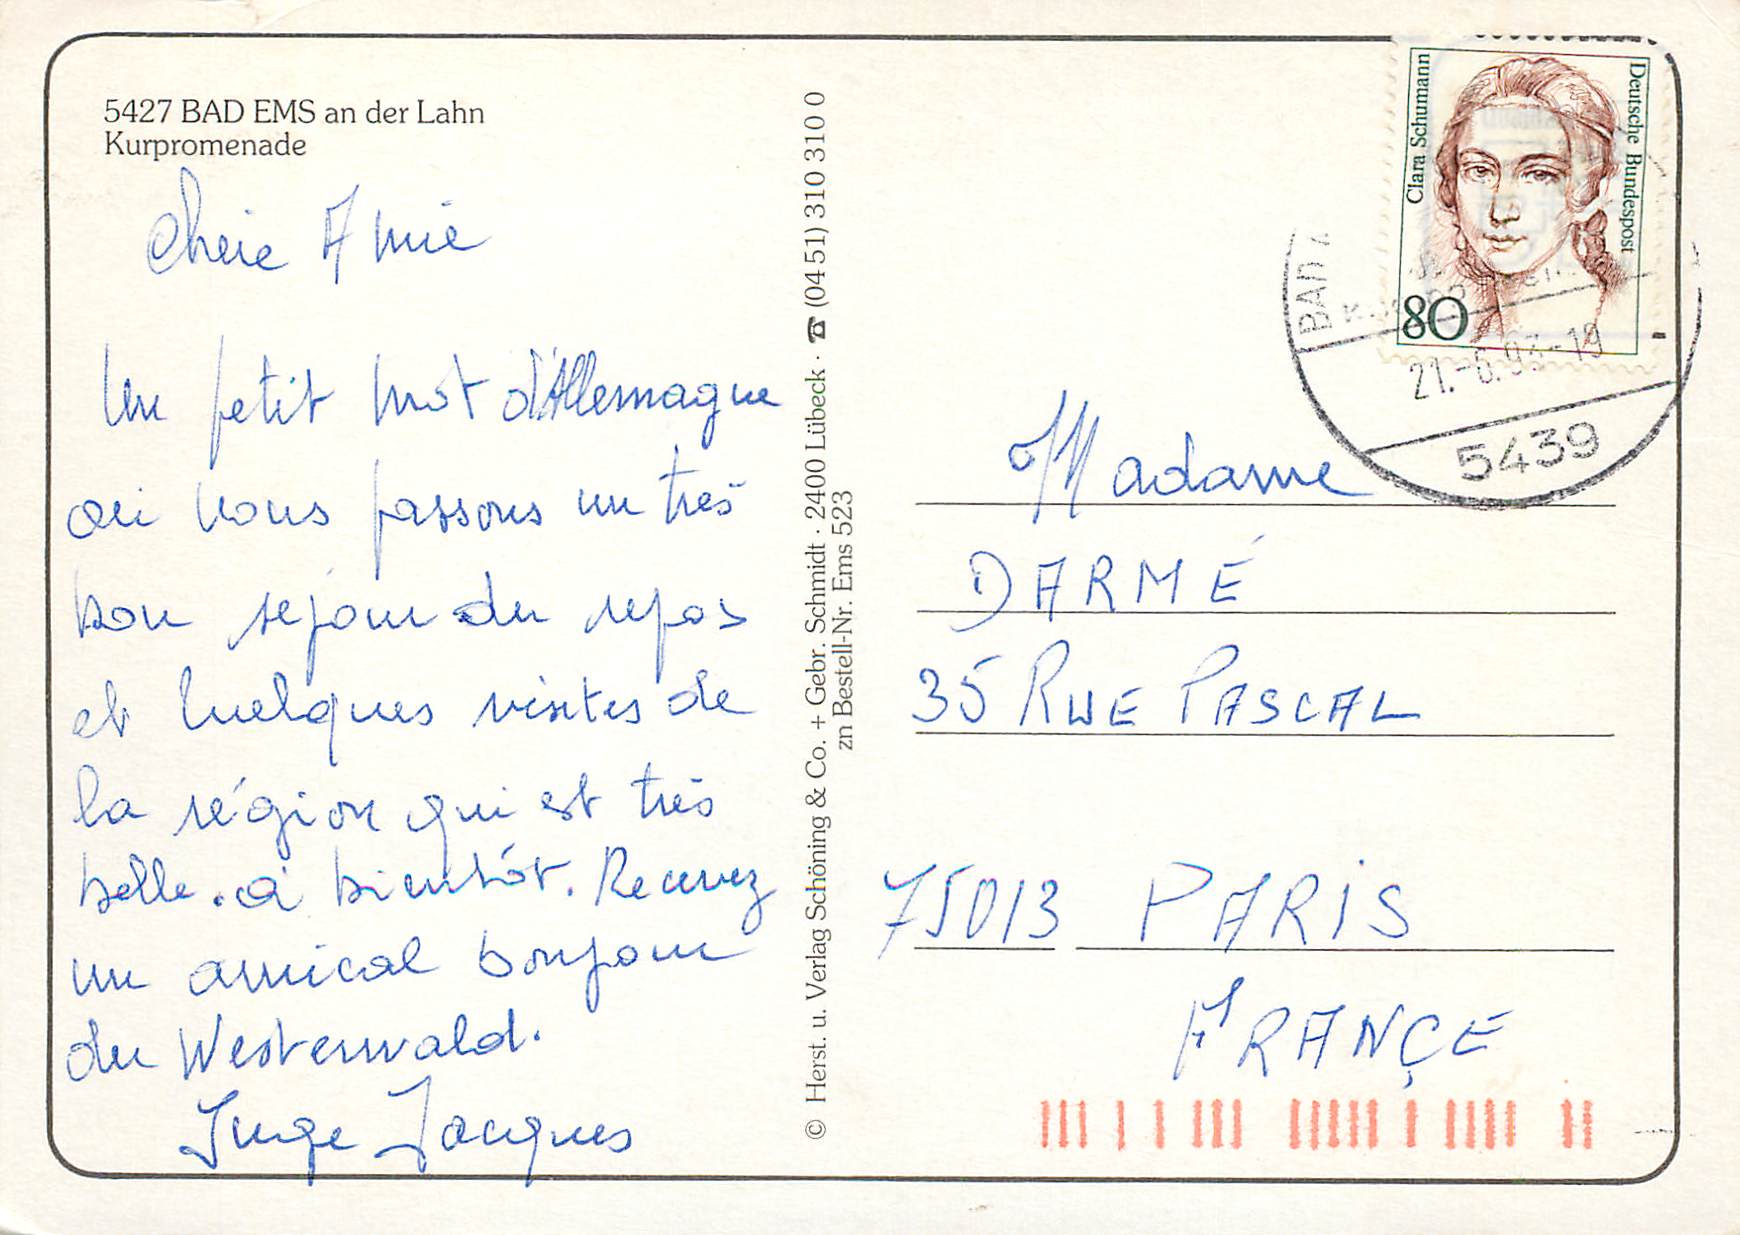 5427 BAD EMS an der Lahn
Kurpromenade
Chère Amie
Un petit mot d'Allemagne
où nous passons un très
bon séjour du repos
et quelques visites de
la région qui est très
belle. à bientôt. Recevez
un amical bonjour
du Westerwald.
Inge Jacques
© Herst. u. Verlag Schöning & Co. + Gebr. Schmidt · 2400 Lübeck · ☎ (04 51) 310 310 0
zn Bestell-Nr. Ems 523
Clara Schumann
Deutsche Bundespost
80
BAD
21.-6.93-19
5439
Madame
DARMÉ
35 RUE PASCAL
75013 PARIS
FRANÇE